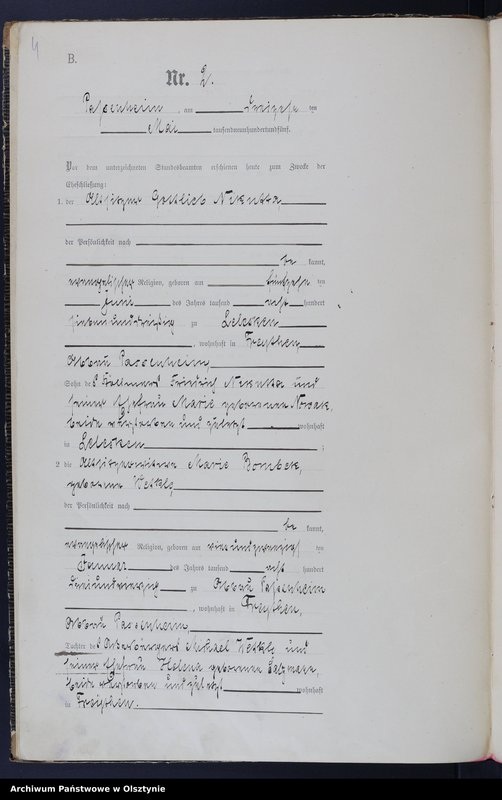 4
B.
Nr. 2.
Passenheim, am Dreizehn ten
Mai tausendneunhundertundfünf.
Vor dem unterzeichneten Standesbeamten erschienen heute zum Zwecke der
Eheschließung:
1. der Altsitzer Gottlieb Nikutta
der Persönlichkeit nach
be kannt,
evangelischer Religion, geboren am fünfzehn ten
Juni des Jahres tausend acht hundert
siebenunddreißig zu Lelesken
, wohnhaft in Freythen,
Abbau Passenheim,
Sohn des Friedrich Nikutta und
seiner Ehefrau Marie geborenen Nowak,
beide verstorben und zuletzt wohnhaft
in Lelesken ;
2. die Altsitzerwitwe Marie Bombek,
geborene
der Persönlichkeit nach
be kannt,
evangelischer Religion, geboren am vierundzwanzigsten
Januar des Jahres tausend acht hundert
zu Abbau Passenheim
, wohnhaft in Freythen,
Abbau Passenheim
Tochter des Michael und
seiner Ehefrau Helena geborenen
beide verstorben und zuletzt wohnhaft
in Freythen.
Archiwum Państwowe w Olsztynie